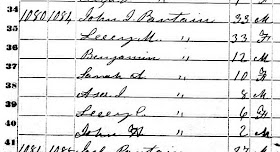 34 1080 1084 John J Partain 33 M
35 Leecy M. " 33 F
36 Benjamin " 12 M
37 Sarah A " 10 F
38 Asa J " 8 M
39 Leecy C. " 6 F
40 John W " 2 M
41 1081 Partain 27 M